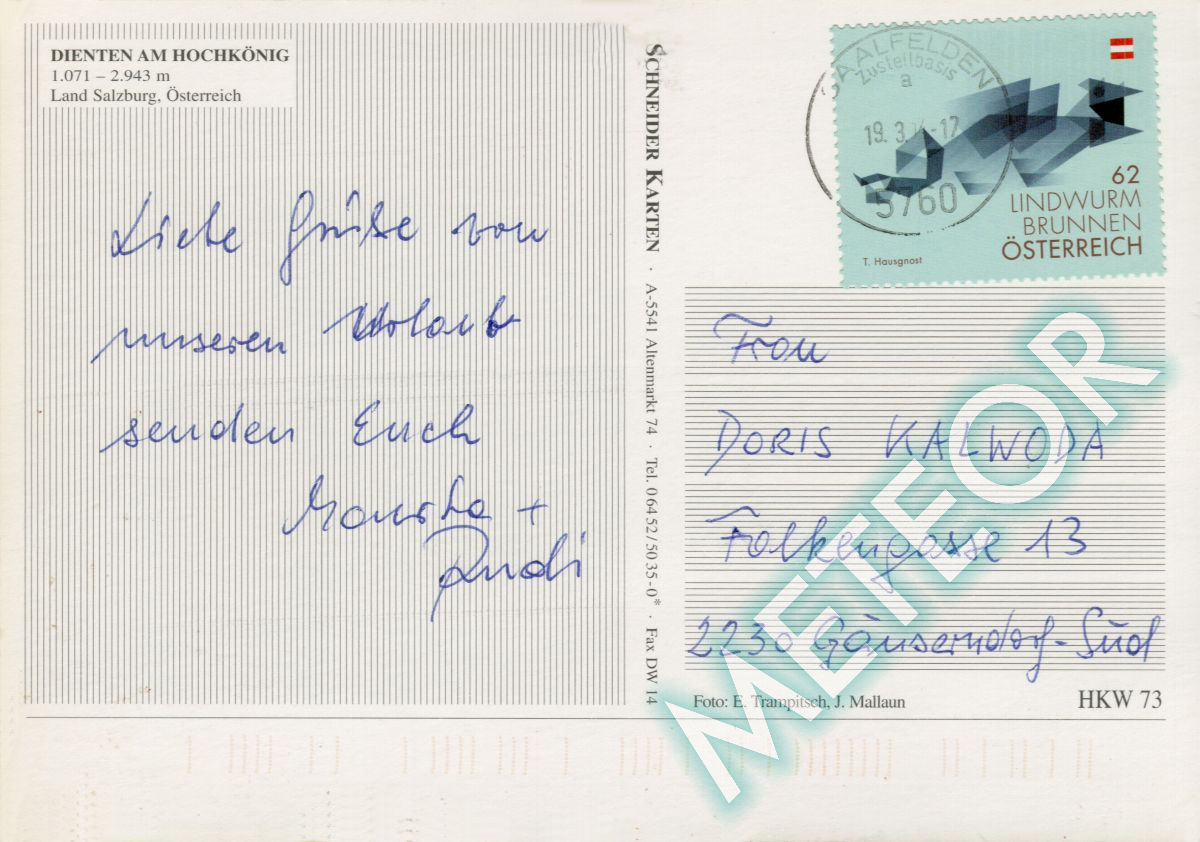 DIENTEN AM HOCHKÖNIG
1.071 – 2.943 m
Land Salzburg, Österreich
Liebe Grüße von
unseren Urlaub
senden Euch
Monika +
Rudi
SCHNEIDER KARTEN · A-5541 Altenmarkt 74 · Tel. 06452/5035-0* · Fax DW 14
SAALFELDEN
Zustellbasis
a
19. 3. -17
5760
62
LINDWURM
BRUNNEN
ÖSTERREICH
T. Hausgnost
Frau
DORIS KALWODA
Falkengasse 13
2230 Gänserndorf-Süd
Foto: E. Trampitsch, J. Mallaun
HKW 73
METEOR